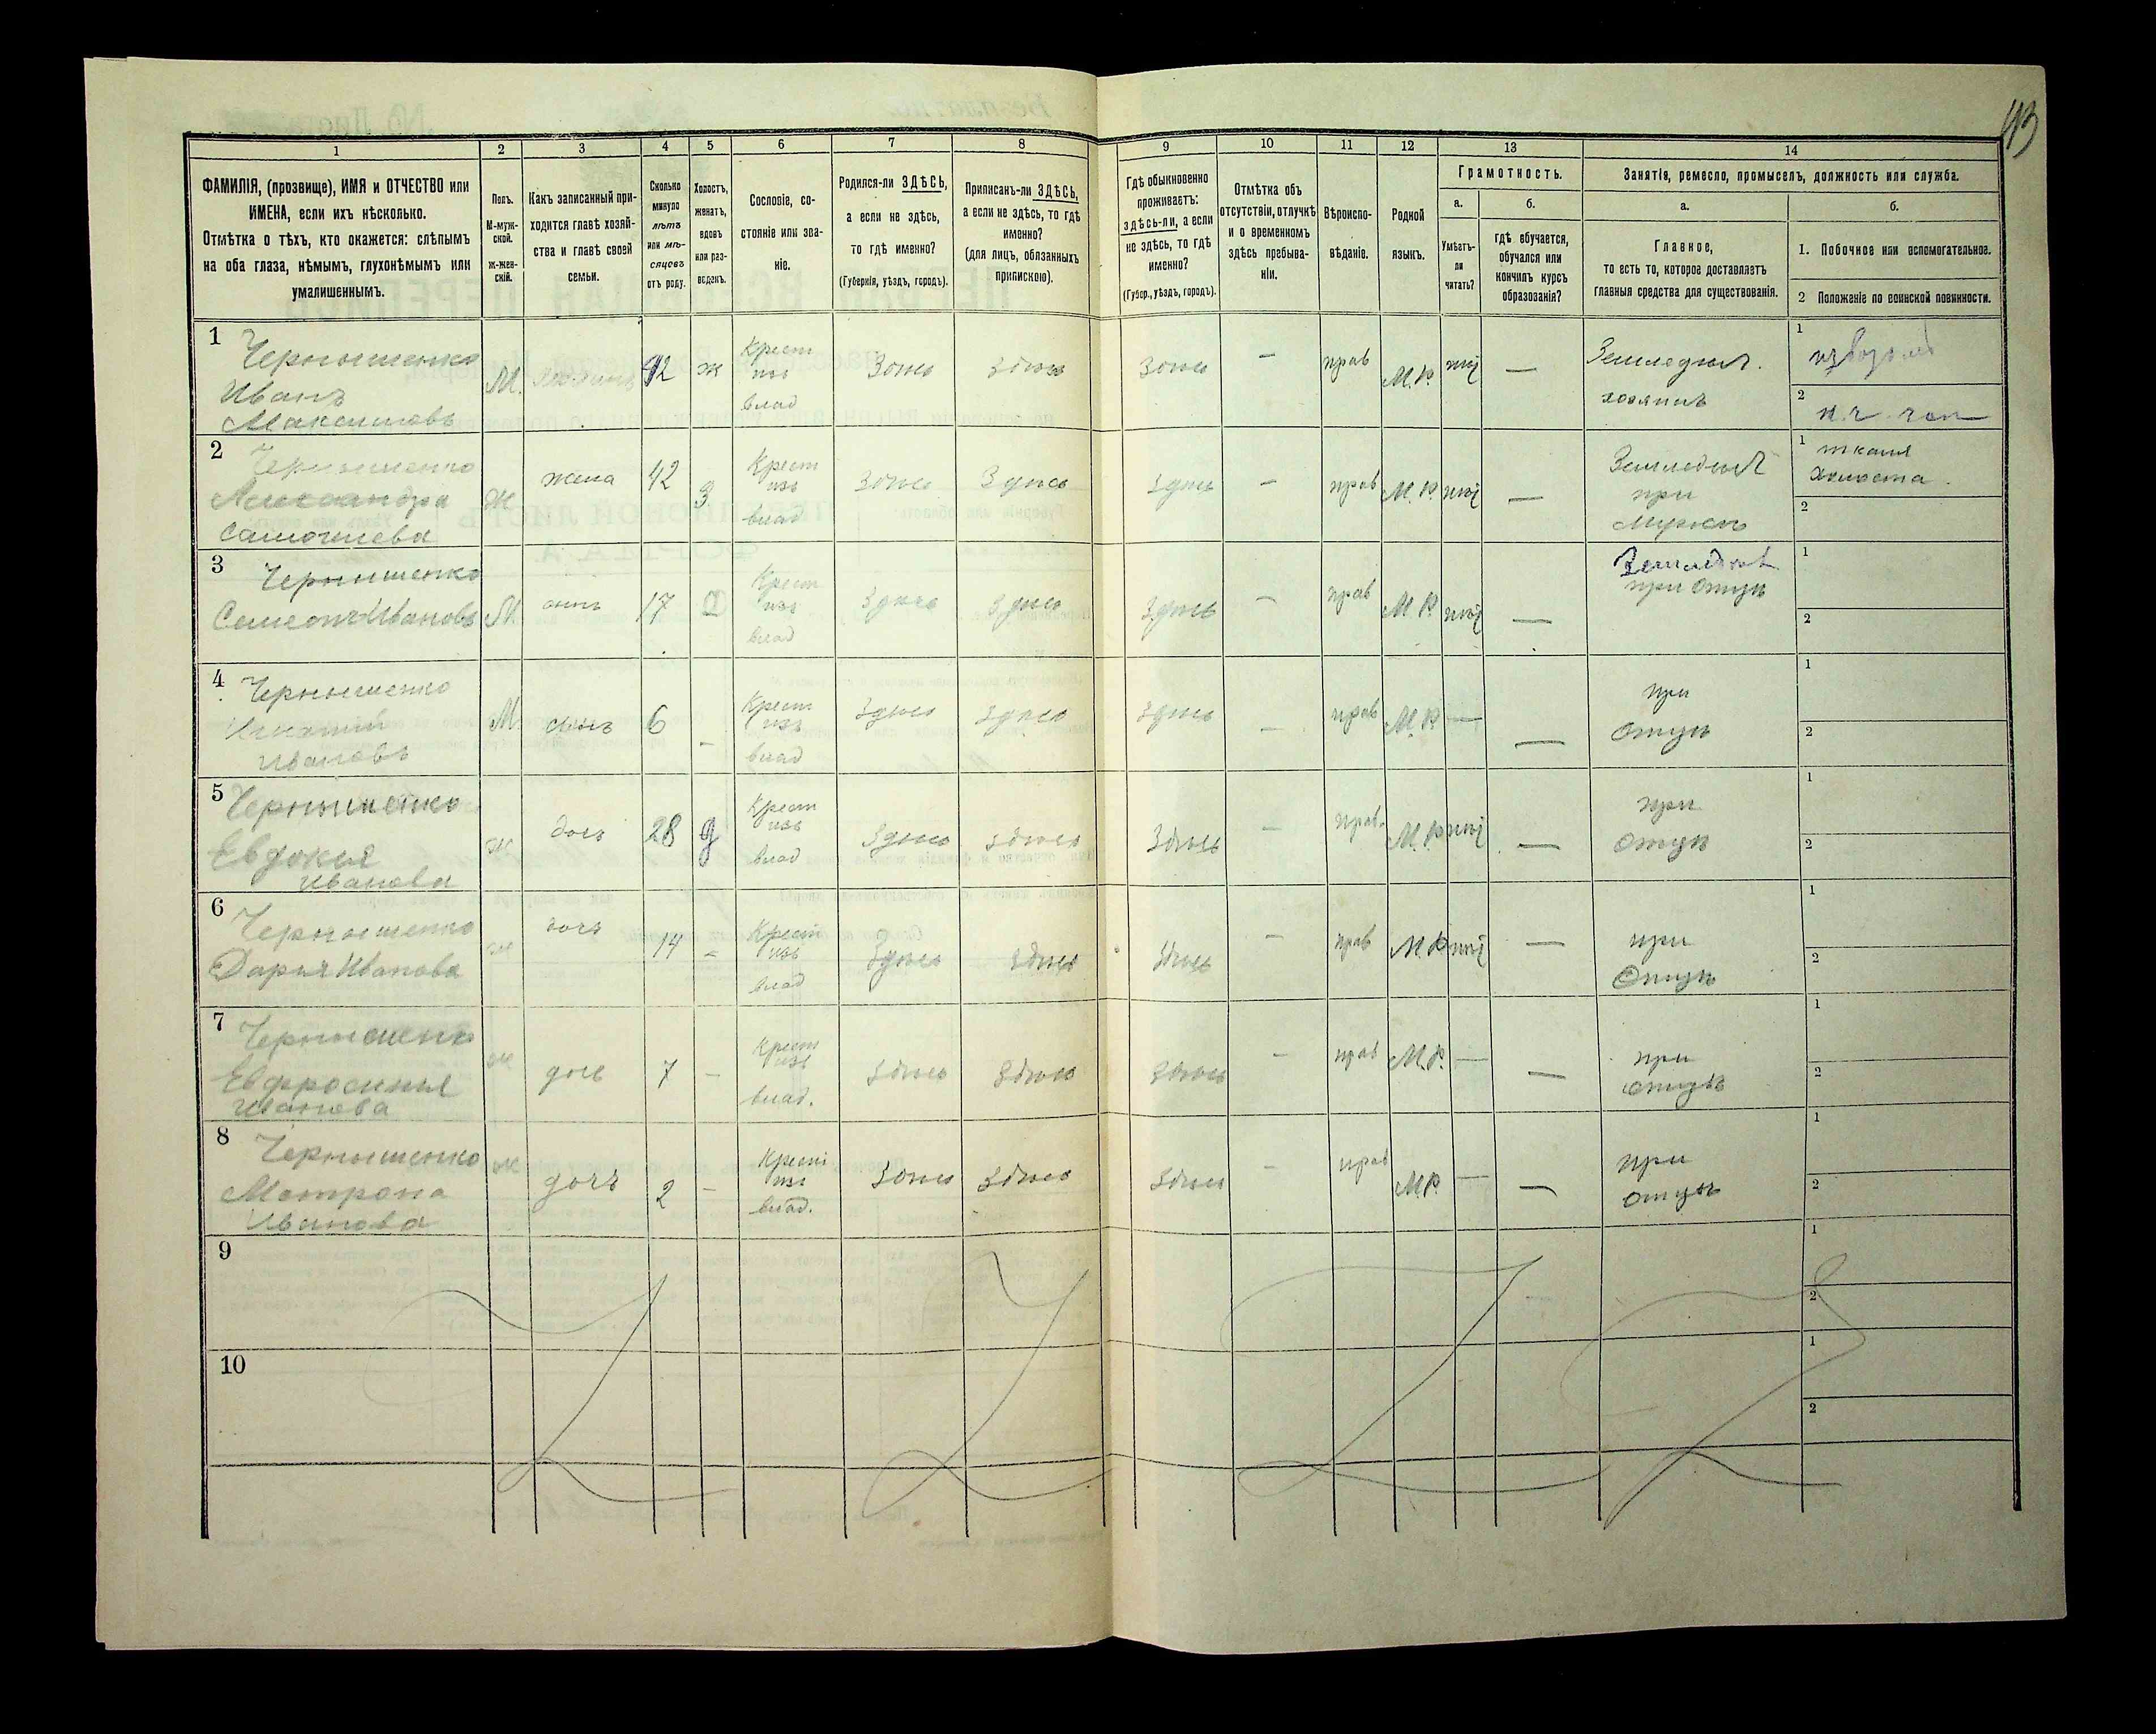 43
1 2 3 4 5 6 7 8 9 10 11 12 13 14
ФАМИЛІЯ, (прозвище), ИМЯ и ОТЧЕСТВО или
ИМЕНА, если ихъ нѣсколько.
Отмѣтка о тѣхъ, кто окажется: слѣпымъ
на оба глаза, нѣмымъ, глухонѣмымъ или
умалишеннымъ.
Полъ.
М-муж-
ской.
ж-жен-
скій.
Какъ записанный при-
ходится главѣ хозяй-
ства и главѣ своей
семьи.
Сколько
минуло
лѣтъ
или мѣ-
сяцевъ
отъ роду.
Холостъ,
женатъ,
вдовъ
или раз-
веденъ.
Сословіе, со-
стояніе или зва-
ніе.
Родился-ли ЗДѢСЬ,
а если не здѣсь,
то гдѣ именно?
(Губернія, уѣздъ, городъ).
Приписанъ-ли ЗДѢСЬ,
а если не здѣсь, то гдѣ
именно?
(для лицъ, обязанныхъ
припискою).
Гдѣ обыкновенно
проживаетъ:
здѣсь-ли, а если
не здѣсь, то гдѣ
именно?
(Губер., уѣздъ, городъ).
Отмѣтка объ
отсутствіи, отлучкѣ
и о временномъ
здѣсь пребыва-
ніи.
Вѣроиспо-
вѣданіе.
Родной
языкъ.
Грамотность.
а.
Умѣетъ-
ли
читать?
б.
гдѣ обучается,
обучался или
кончилъ курсъ
образованія?
Занятіе, ремесло, промыселъ, должность или служба.
а.
Главное,
то есть то, которое доставляетъ
главныя средства для существованія.
б.
1. Побочное или вспомогательное.
2 Положеніе по воинской повинности.
1 Чернышенко
Иванъ
Максимовъ
М. 42 ж
Крест
изъ
влад
здѣсь здѣсь здѣсь — прав М.Р. нѣтъ —
Земледѣл.
хозяинъ
1
2
2 Чернышенко
Александра
Самочиева
Ж жена 42 З
Крест
изъ
влад
здѣсь здѣсь здѣсь — прав М.Р. нѣтъ —
Земледѣл
при
мужѣ
1 тканя
холста.
2
3 Чернышенко
Семенъ Ивановъ
М сынъ 17
Крест
изъ
влад
здѣсь здѣсь здѣсь — прав М.Р. нѣтъ —
Земледѣл
при отцѣ
1
2
4 Чернышенко
Игнатій
Ивановъ
М. сынъ 6 —
Крест
изъ
влад
здѣсь здѣсь здѣсь — прав М.Р. — —
при
отцѣ
1
2
5 Чернышенко
Евдокия
Иванова
ж дочь 28 д
Крест
изъ
влад
здѣсь здѣсь здѣсь — прав. М.Р. нѣтъ —
при
отцѣ
1
2
6 Чернышенко
Дарья Иванова
ж дочь 14 -
Крест
изъ
влад
здѣсь здѣсь здѣсь — прав М.Р. нѣтъ —
при
отцѣ
1
2
7 Чернышенко
Евфросинья
Иванова
ж дочь 7 —
Крест
изъ
влад.
здѣсь здѣсь здѣсь — прав М.Р. — —
при
отцѣ
1
2
8 Чернышенко
Матрона
Иванова
ж дочь 2 —
Крест
изъ
влад.
здѣсь здѣсь здѣсь — прав М.Р. — —
при
отцѣ
1
2
9
1
2
10
1
2